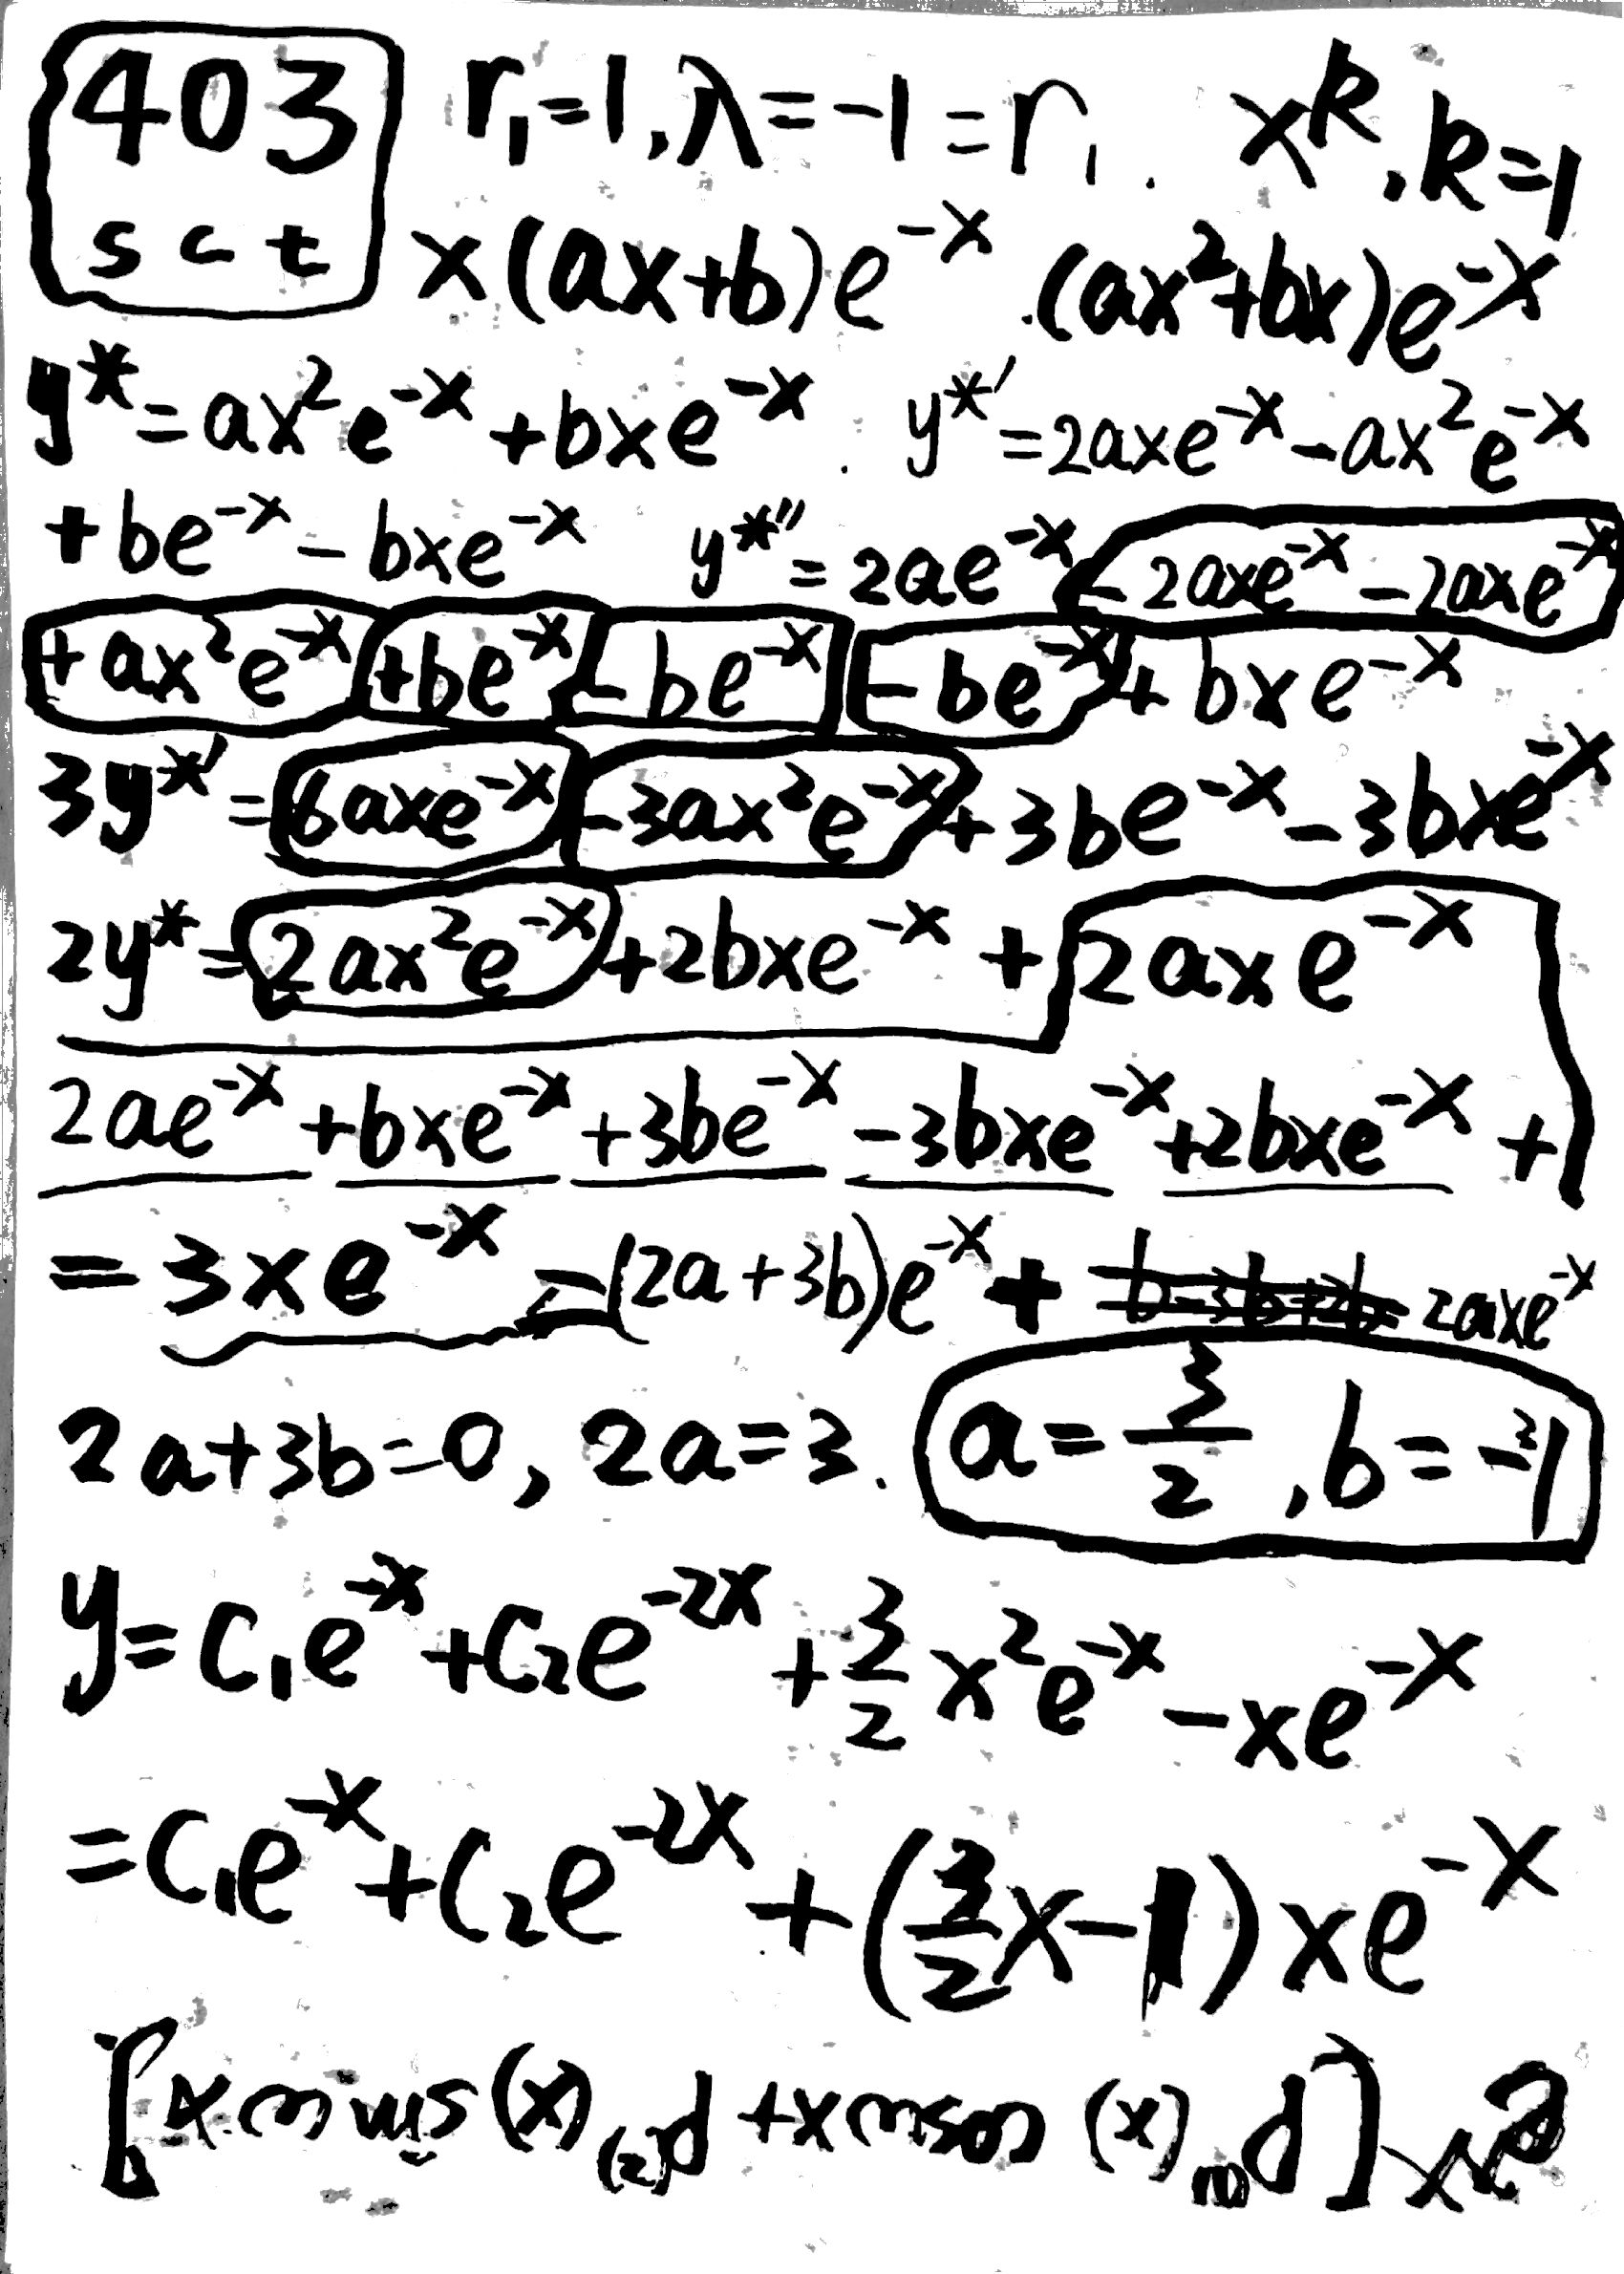 403 r₁=1,λ=-1=r₁. xᵏ,k=1
sct x(ax+b)e⁻ˣ .(ax²+bx)e⁻ˣ
y*=ax²e⁻ˣ+bxe⁻ˣ. y*'=2axe⁻ˣ-ax²e⁻ˣ
+be⁻ˣ-bxe⁻ˣ y*''=2ae⁻ˣ-2axe⁻ˣ-2axe⁻ˣ
+ax²e⁻ˣ+be⁻ˣ-be⁻ˣ-be⁻ˣ+bxe⁻ˣ
3y*'=6axe⁻ˣ-3ax²e⁻ˣ+3be⁻ˣ-3bxe⁻ˣ
2y*=2ax²e⁻ˣ+2bxe⁻ˣ+2axe⁻ˣ
2ae⁻ˣ+bxe⁻ˣ+3be⁻ˣ-3bxe⁻ˣ+2bxe⁻ˣ+
=3xe⁻ˣ=(2a+3b)e⁻ˣ+2axe⁻ˣ
2a+3b=0, 2a=3. a=3/2, b=-1
y=C₁e⁻ˣ+C₂e⁻²ˣ+3/2x²e⁻ˣ-xe⁻ˣ
=C₁e⁻ˣ+C₂e⁻²ˣ+(3/2x-1)xe⁻ˣ